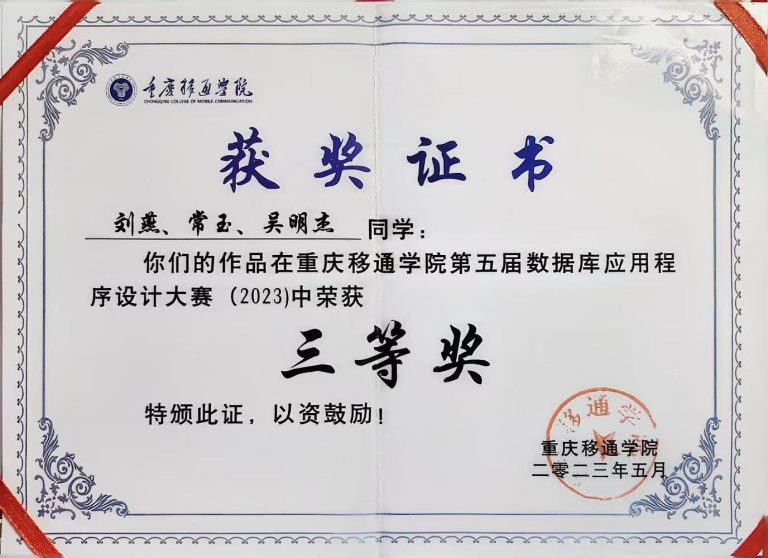 重庆移通学院
CHONGQING COLLEGE OF MOBILE COMMUNICATION
获奖证书
刘燕、常玉、吴明杰 同学：
你们的作品在重庆移通学院第五届数据库应用程
序设计大赛（2023)中荣获
三等奖
特颁此证，以资鼓励！
移通学
重庆移通学院
二零二三年五月